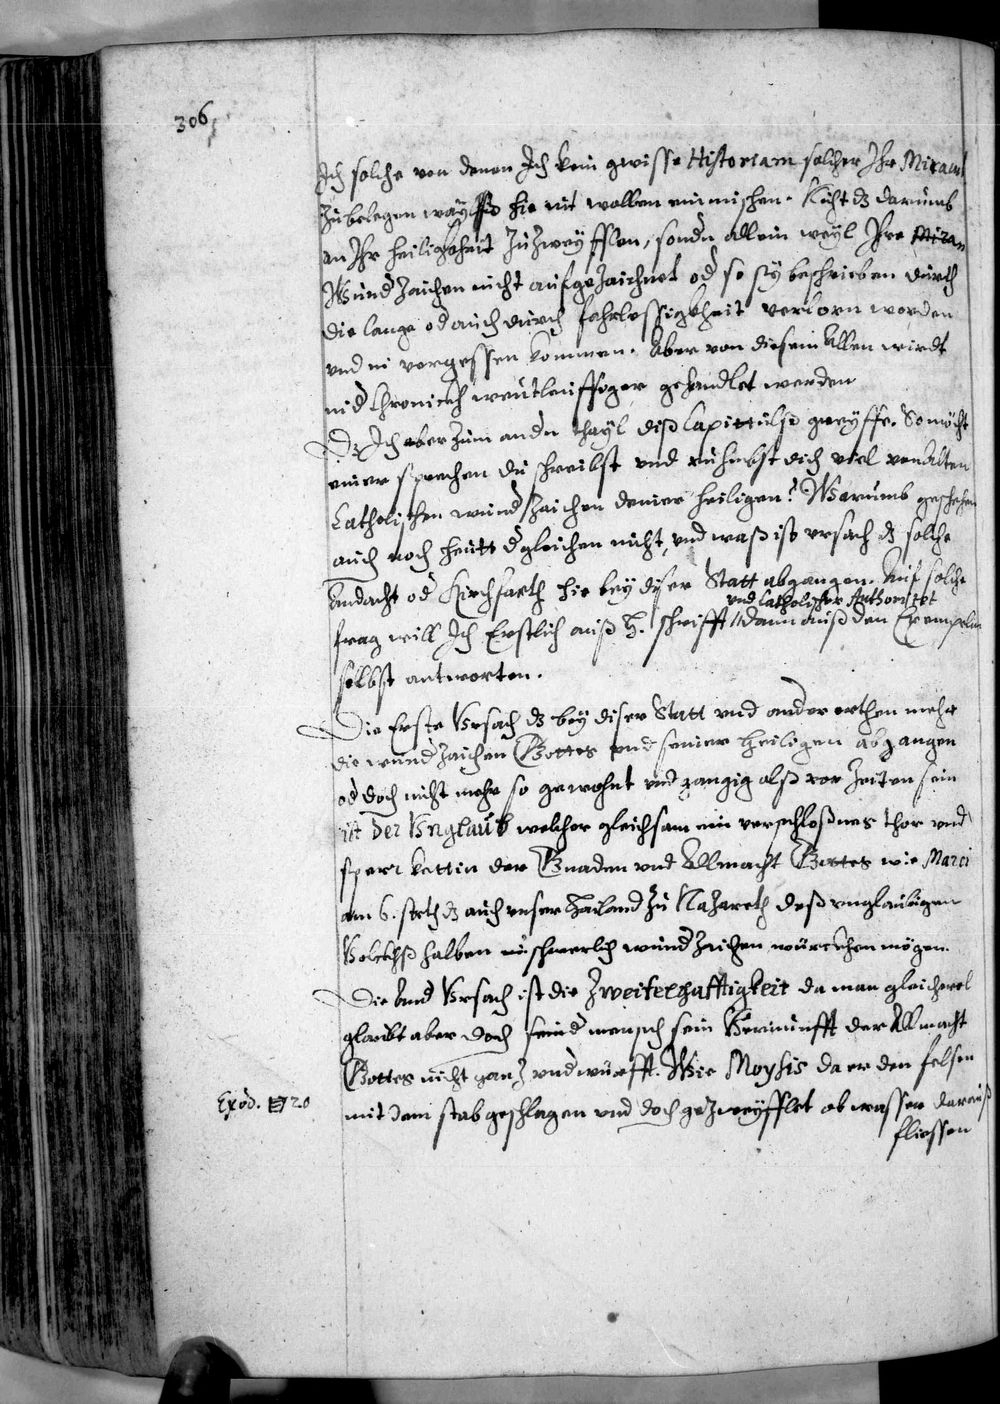 306
Ich solche von denen Ich kein gwisse Historiam solcher Ihr Miracul
Zubelegen wayß hie nit wollen einmischen. Nicht dz darumb
an Ihr heiligkheit Zuzweyfflen, sondn allein weyl Ihre Mira
Wundzaichen nicht aufgezaichnet od so sy beschrieben durch
die lange od auch durch fahrlessigkheit verlorn worden
vnd in vergessen kommen. Aber von diesem Allen wirdt
in d Chronickh weütleuffiger gehandlet werden
Dz Ich aber Zum andn thayl diß Capittulß greyffe. So möcht
einer sprechen du schreibst vnd rühmbst dich viel von Alten
Catholischen wundzaichen deiner heiligen? Warumb geschehen
auch noch heütt dgleichen nicht, vnd waß ist vrsach dz solche
Andacht od Kirchfarth hie bey diser Statt abgangen. Auf solche
vnd Catholischer Authoritet
frag will Ich Erstlich auß H. schrifft dann auß den Exemplen
selbst antworten.
Die Erste Vrsach dz bey diser Statt vnd ander orthen mehr
die wundzaichen Gottes vnd seiner heiligen abgangen
od doch nicht mehr so gewohnt vnd gangig alß vor Zeiten sein
ist Der Vnglaub welcher gleichsam ein verschloßnes thor vnd
sperr kettin der Gnaden vnd Allmacht Gottes wie Marci
am 6. steth dz auch vnser Hailand Zu Nazareth deß vnglaubigen
Volckhß halben schwerlich wundzaichen würckhen mögen.
Die And Vrsach ist die Zweifelhafftigkeit da man gleichwol
glaubt aber doch seind mensch sein Vernunfft der Allmacht
Gottes nicht ganz vndwürfft. Wie Moysis da er den felsen
Exod. 20
mit dem stab geschlagen vnd doch gezweyfflet ob wasser darauß
fliessen